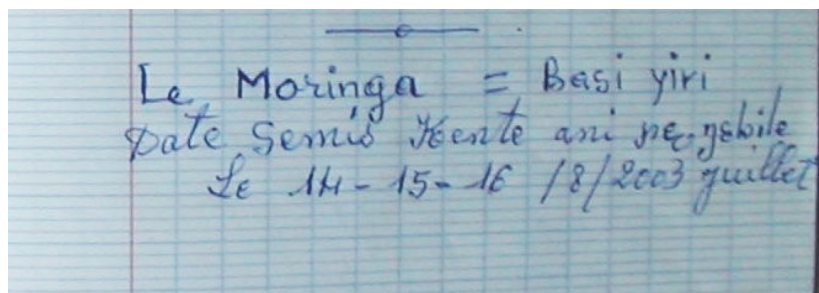 Le Moringa = Basi yiri
Date Semis Kente ani
Le 14 - 15 - 16 / 8 / 2003 juillet